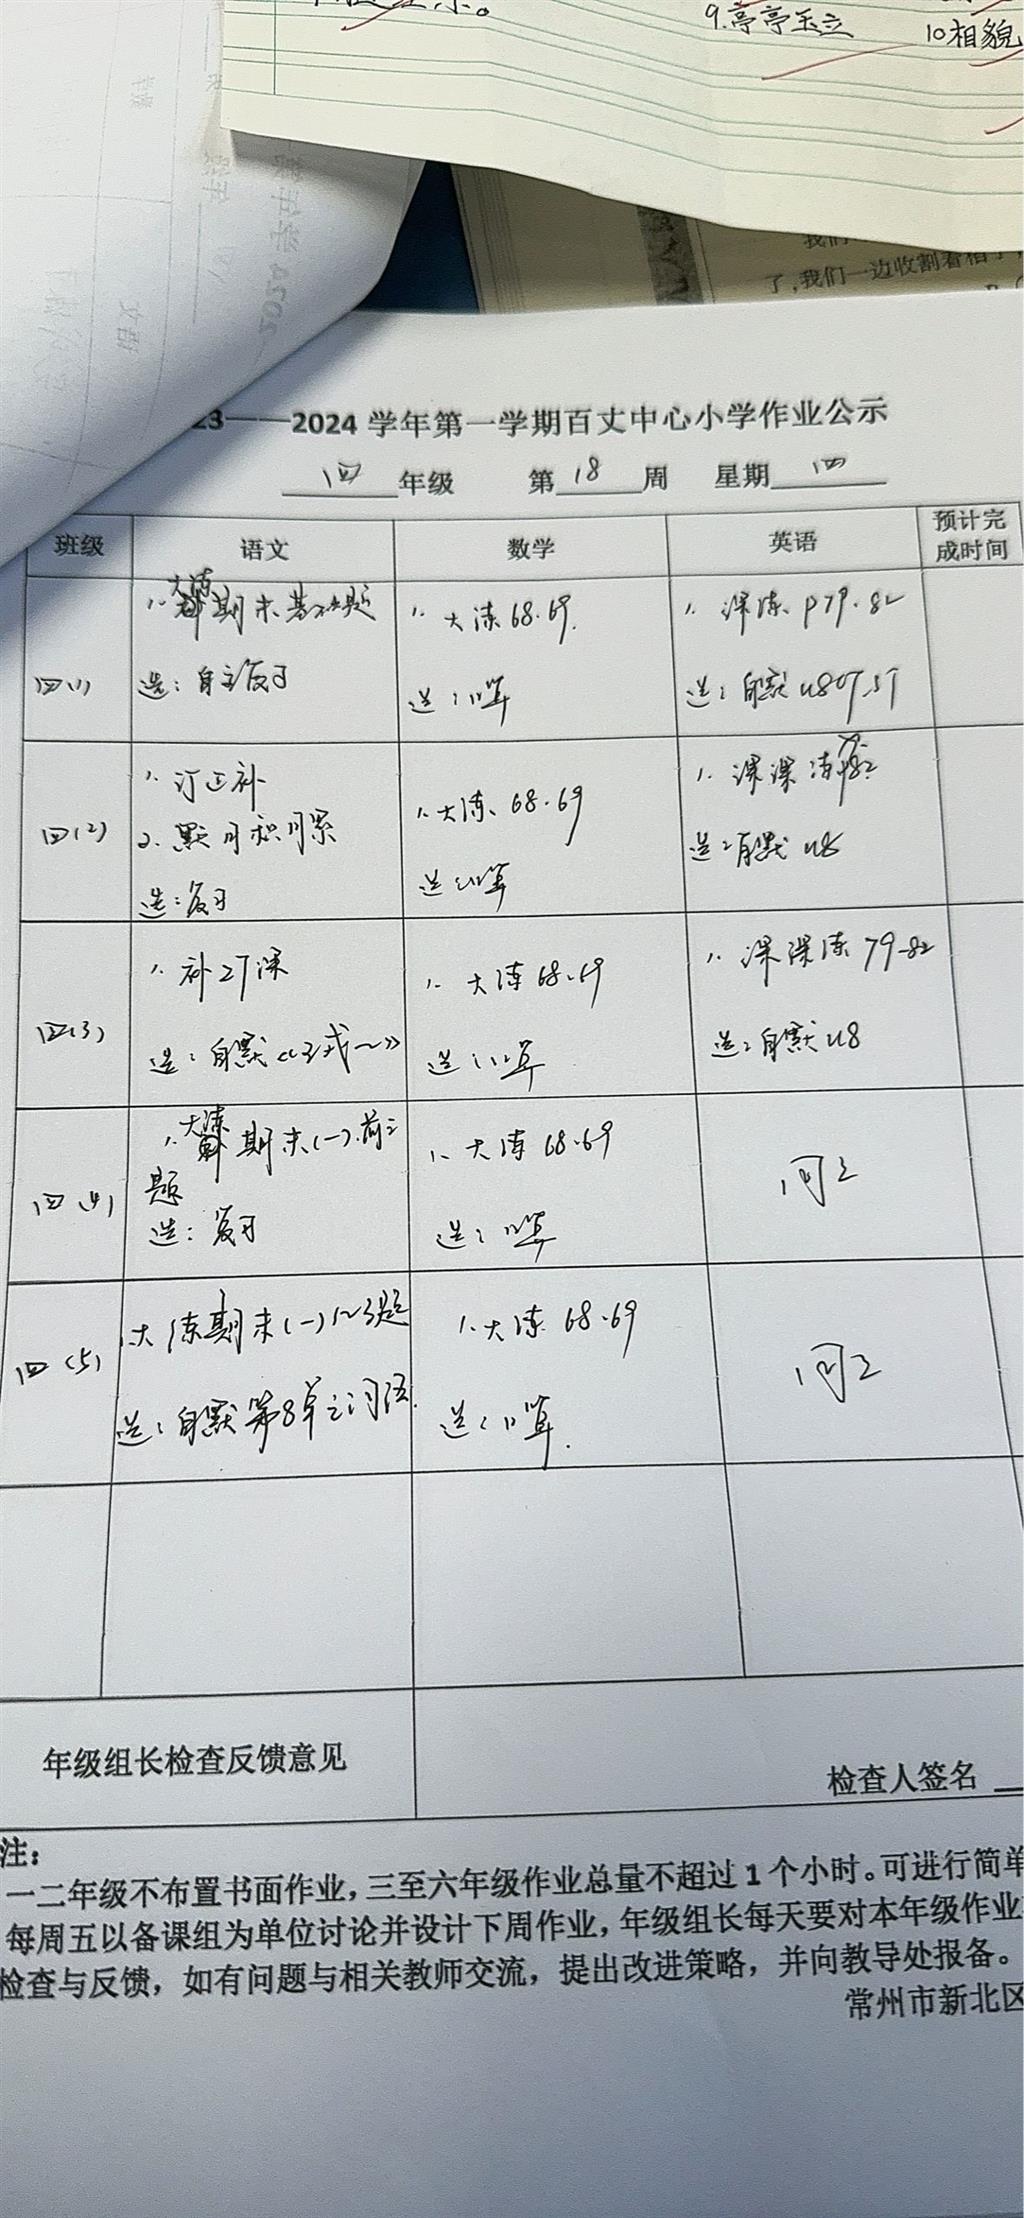 9.亭亭玉立
10相貌
了,我们一边收割着稻
23——2024 学年第一学期百丈中心小学作业公示
四 年级 第 18 周 星期 四
班级 语文 数学 英语 预计完成时间
四(1)
1. 大练期末基础题
选：自主复习
1. 大练 68.69.
选：口算
1. 课课练 P79-82
选：自默 u8
四(2)
1. 订正补
2. 默日积月累
选：复习
1. 大练 68.69
选：口算
1. 课课练
选：自默 u8
四(3)
1. 补27课
选：自默《王戎~》
1. 大练 68.69
选：口算
1. 课课练 79-82
选：自默 u8
四(4)
1. 大练期末(一).前三
题
选：复习
1. 大练 68.69
选：口算
同2
四(5)
1.大练期末(一)1~3题
选：自默第8单元词语.
1. 大练 68.69
选：口算.
同2
年级组长检查反馈意见
检查人签名
注：
一二年级不布置书面作业，三至六年级作业总量不超过 1 个小时。可进行简单
每周五以备课组为单位讨论并设计下周作业，年级组长每天要对本年级作业
检查与反馈，如有问题与相关教师交流，提出改进策略，并向教导处报备。
常州市新北区